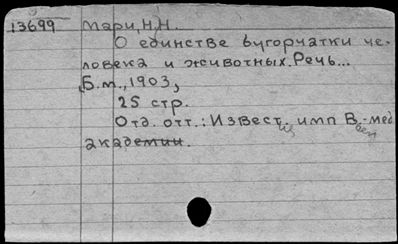 13699 Мари, Н.Н.
О единстве бугорчатки че-
ловека и животных. Речь...
Б.м., 1903,
25 стр.
Отд. отт.: Извест. имп. В.-мед
академии.